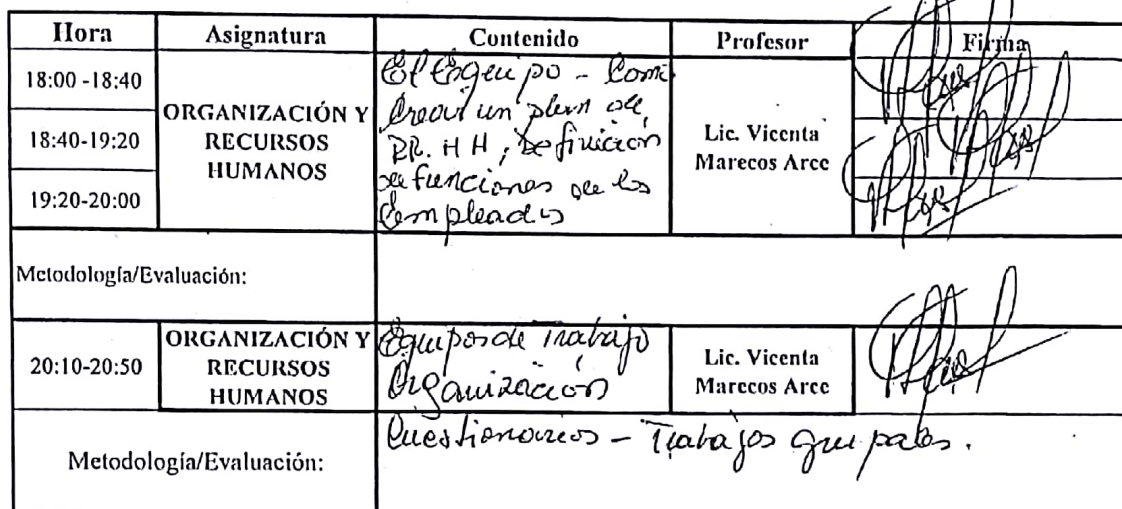 Hora Asignatura Contenido Profesor Firma
18:00 -18:40
18:40-19:20
19:20-20:00
ORGANIZACIÓN Y
RECURSOS
HUMANOS
El Equipo - Como
crear un plan de
RR. HH, Definición
de funciones de los
Empleados
Lic. Vicenta
Marecos Arce
Metodología/Evaluación:
20:10-20:50
ORGANIZACIÓN Y
RECURSOS
HUMANOS
Equipos de trabajo
Organización
Lic. Vicenta
Marecos Arce
Metodología/Evaluación:
Cuestionarios - Trabajos grupales.